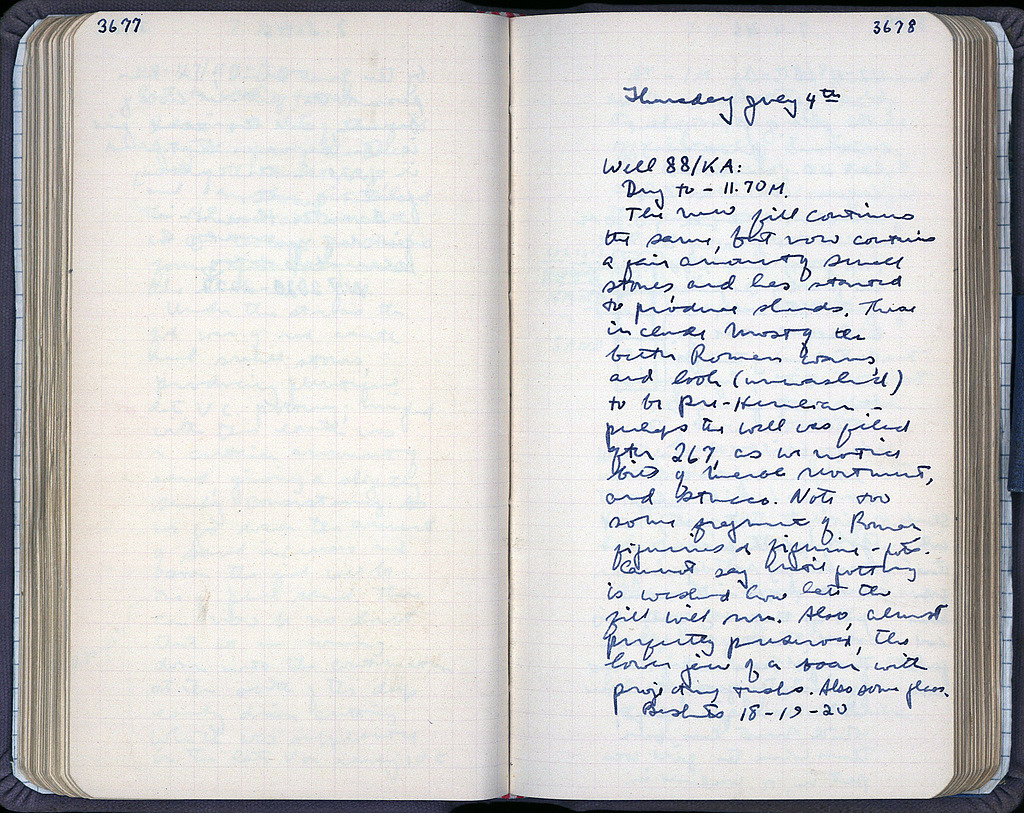 3677
3678
Thursday July 4th
Well 88/KA:
Dug to - 11.70 M.
The new fill continues
the same, but now contains
a fair amount of small
stones and has started
to produce sherds. These
include mostly the
better Roman wares,
and look (unwashed)
to be pre-Herulian -
perhaps the well was filled
after 267, as we notice
bits of marble revetment,
and stucco. Note too
some fragments of Roman
figurines & figurine-pots.
Cannot say until pottery
is washed how late the
fill will run. Also, almost
perfectly preserved, the
lower jaw of a boar with
projecting tusks. Also some glass.
Baskets 18-19-20